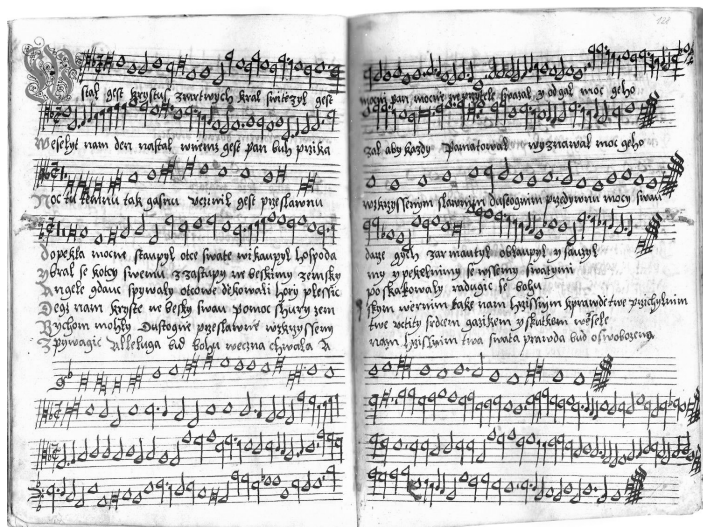 Wstal gest krystus zmrtwych kral switezyl gest
Weselyt nam den nastal wnemz gest pan buh
Noc tu temnu tak gasnu vcinil gest przeslawnu
dopekla mocne staupyl otce swate wikaupyl hospoda
Ybral se kotcy swemu z zastupy w beskimy zemsky
Angele gdauc spywaly otcowe dekowali hory plessic
Degz nam kryste w besky swau pomoc
Bychom mohly Dustogne przeslawne wzkryssenij
Zpywagic Alleluga bud bohu weczna chwala A
mocny pan mocne neprzytele spautal y odgal moc geho
zal aby kazdy Pamatowal wyznawal moc geho
wzkryssenym slawnym dustognym przedywnu mocy swau
daze gych zarmautyl obłaupyl y sauzyl
my y pekelnimy se wssemy swatymi
poskakowaly radugic se bohu
skym wernim take nam hrzissnim kprawde twe przichylnim
twe cztity srdcem gazikem y skutkem wesele
nam hrzissnim twa swata prawda bud oswobozena